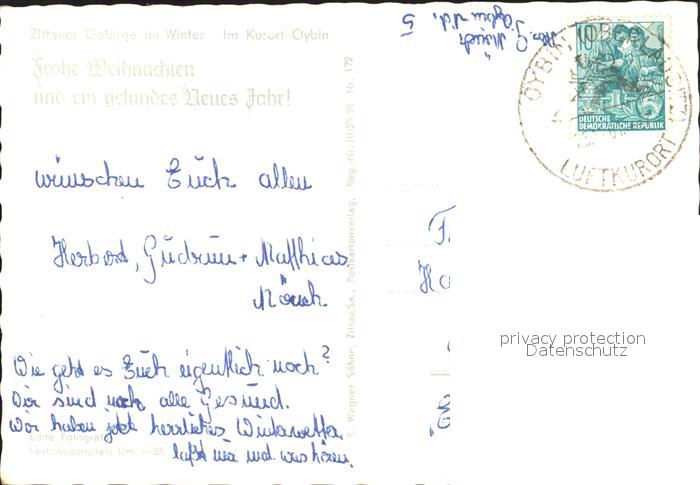 Zittauer Gebirge im Winter Im Kurort Oybin
Frohe Weihnachten
und ein gesundes Neues Jahr!
wünschen Euch allen
Herbord, Gudrun + Matthias
Mönch
Wie geht es Euch eigentlich noch?
Wir sind noch alle Gesund.
Wir haben jetzt herrliches Winterwetter
laßt mal was hören.
Echte Fotografie
Verbraucherpreis DM -.25
E. Wagner Söhne, Zittau/Sa., Postkartenverlag, Reg.-Nr. III/29/36 Nr. 172
Mönch
Oybin
5
10
DEUTSCHE
DEMOKRATISCHE REPUBLIK
OYBIN (OBERLAUSITZ)
LUFTKURORT
privacy protection
Datenschutz